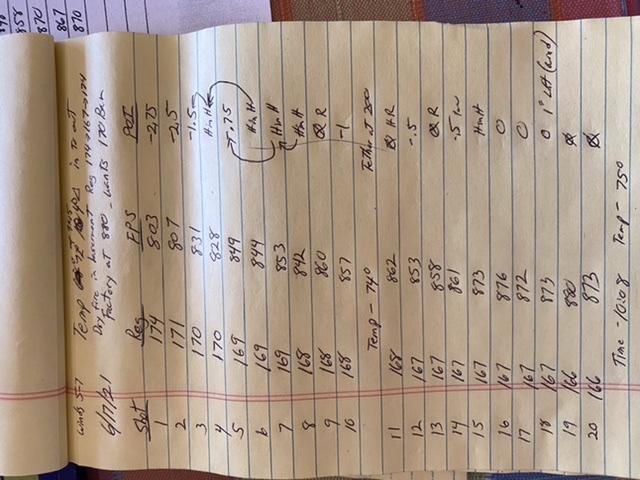 858
870
867
870
winds 5-7 Temp yds in to out
6/17/21 Dry fire in basement Reg 174→167→174
Factory at 880 - wants 170 Bar
Shot Reg FPS POI
1 174 803 -2.75
2 171 807 -2.5
3 170 831 -1.5
4 170 828 HinH
5 169 849 -.75
6 169 844 HinH
7 169 853 HinH
8 168 842 HinH
9 168 860 R
10 168 857 -1
Temp - 74° Tether at 200
11 168 862 R
12 167 853 -.5
13 167 858 R
14 167 861 -.5
15 167 873 HinH
16 167 876 0
17 167 872 0
18 167 873 0 1" LH (wind)
19 166 880 0
20 166 873 0
Time - 10:08 Temp - 75°